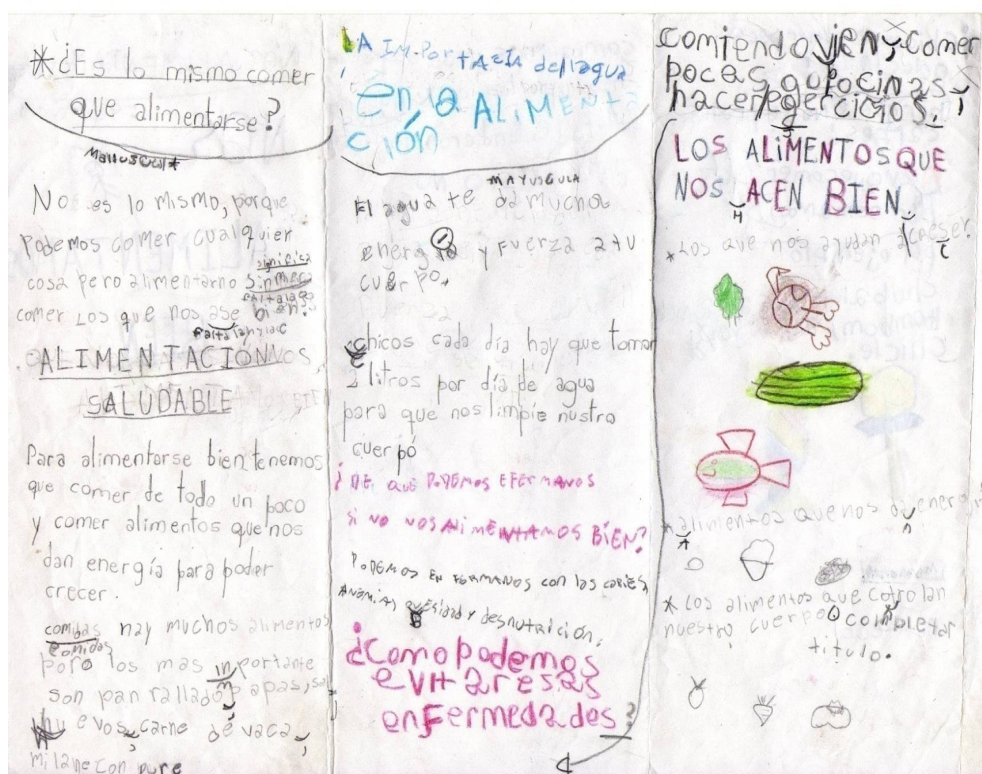 *¿Es lo mismo comer
que alimentarse?
No es lo mismo, porque
Podemos comer cualquier
significa
cosa pero alimentarno sinmerca
comer Los que nos ase bien.
ALIMENTACIÓN
SALUDABLE
Para alimentarse bien tenemos
que comer de todo un poco
y comer alimentos que nos
dan energía para poder
crecer.
combas hay muchos alimentos
comidas
poro los mas inportante
m
son pan rallado, papas, sal
huevos, carne de vaca,
milane con pure
LA IMPortAZIA del lagua
en la ALIMENTA
CIÓN
MAYUSGULA
El agua te da mucha
energía y fuerza a tu
cuerpo.
chicos cada día hay que tomar
2 litros por día de agua
para que nos limpie nustro
cuerpó
¿DE QUÉ PODEMOS EFERMANOS
SI NO NOS ALIMENTAMOS BIEN?
PODEMOS EN FERMANOS CON las CARIES,
ANEMIAS, avesidad y desnutrición.
b
¿Como podemos
evitar esas
enfermedades?
comiendo vien, comer
pocas golocinas,
hacer egercicios.
j
LOS ALIMENTOS QUE
NOS ACEN BIEN.
H
*Los que nos ayudan a creser
C
*alimentos que nos dan energi
A
n
* Los alimentos que cotrolan
nuestro cuerpo completar
titulo.